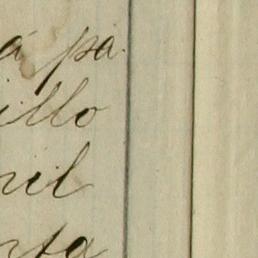 á pa
illo
nil
nta